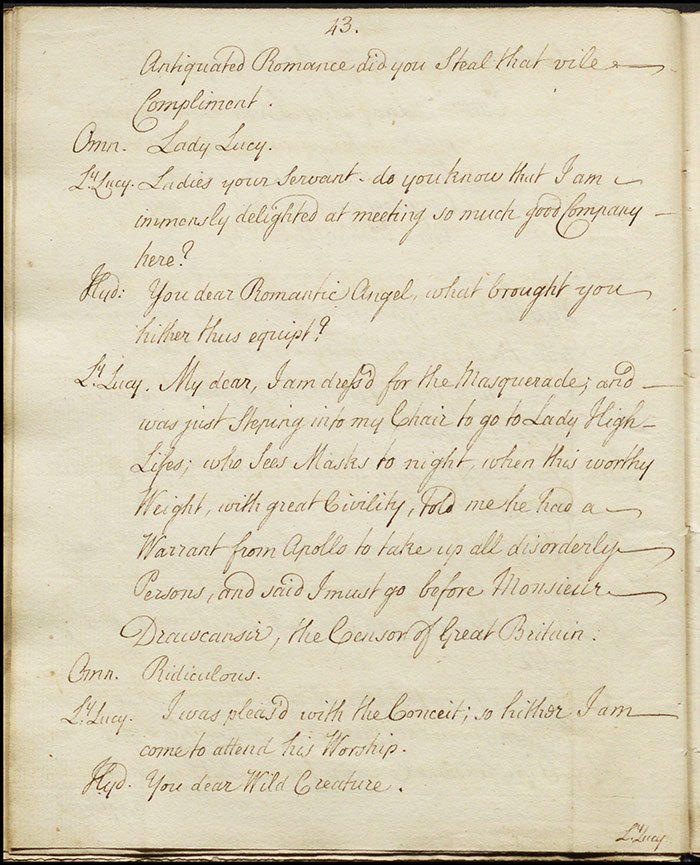 43.
Antiquated Romance did you Steal that vile
Compliment.
Omn. Lady Lucy.
Ly. Lucy. Ladies your Servant. do you know that I am
immensly delighted at meeting so much good Company
here?
Hyd: You dear Romantic Angel, what brought you
hither thus equipt?
Ly. Lucy. My dear, I am dress'd for the Masquerade; and
was just Steping into my Chair to go to Lady High-
Lifes; who Sees Masks to night, when this worthy
Weight, with great Civility, told me he had a
Warrant from Apollo to take up all disorderly
Persons, and said I must go before Monsieur
Drawcansir, the Censor of Great Britain.
Omn. Ridiculous.
Ly. Lucy. I was pleas'd with the Conceit; so hither I am
come to attend his Worship.
Hyd. You dear Wild Creature.
Ly. Lucy